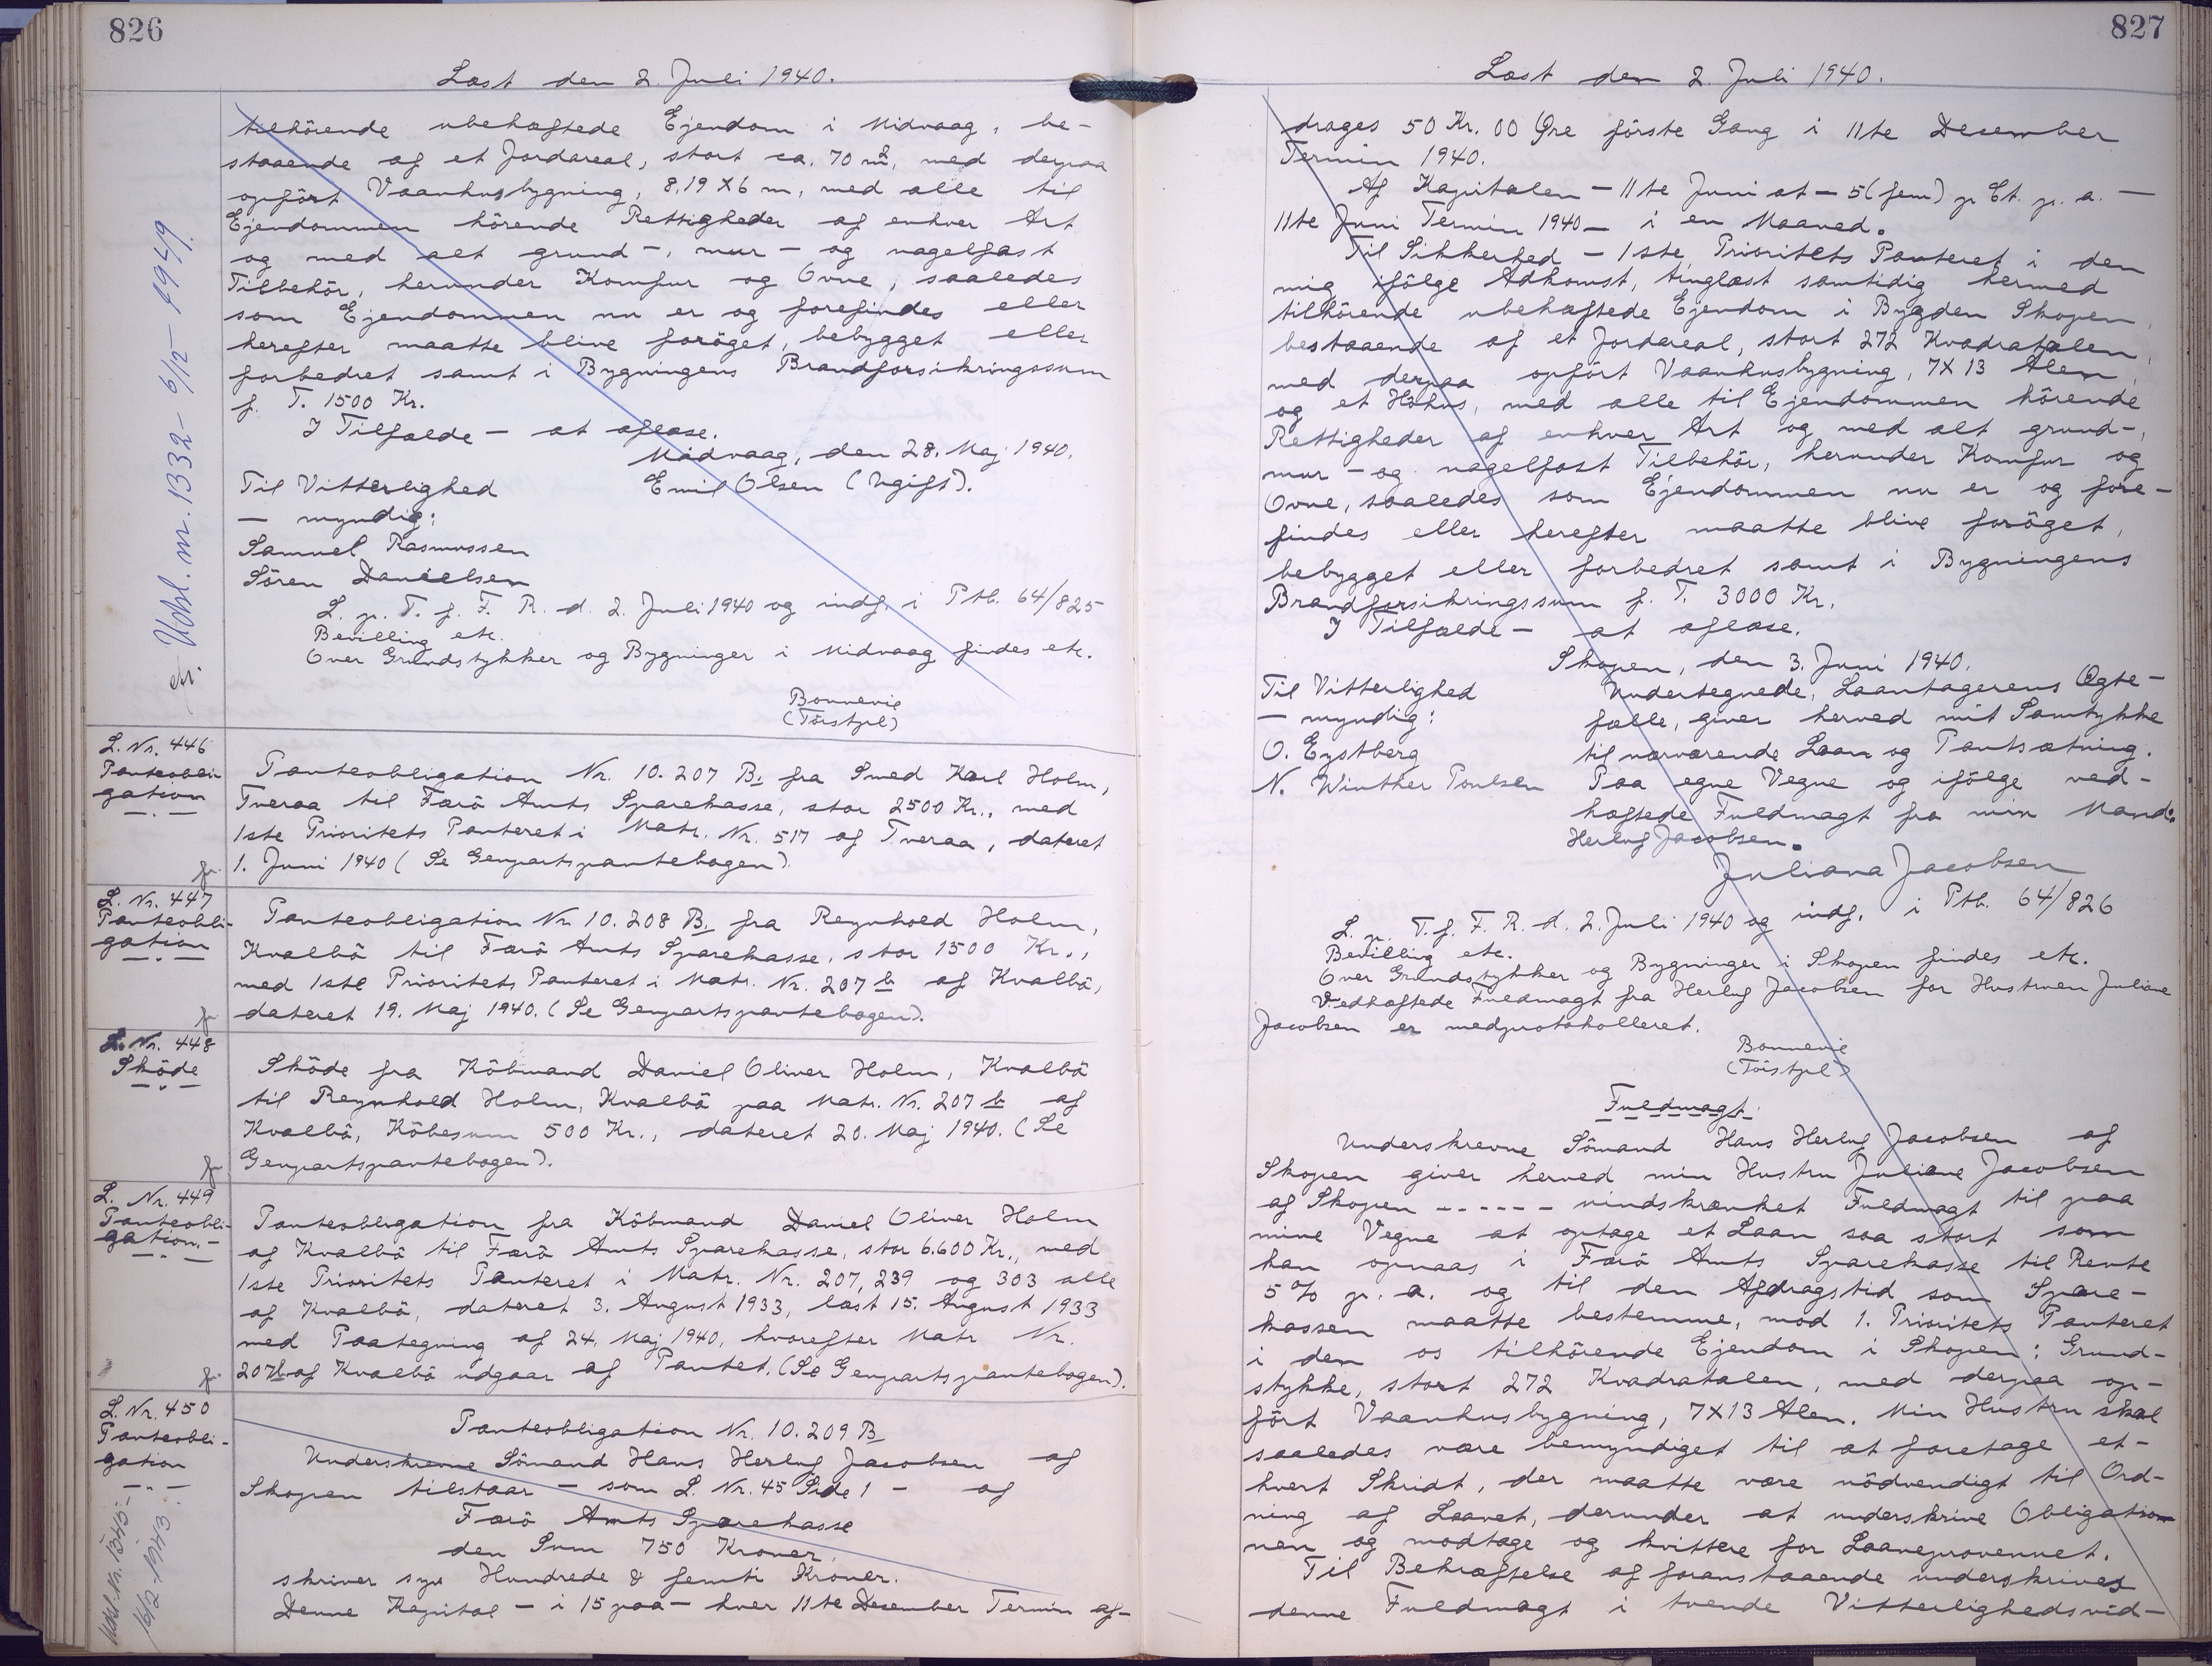 826
Læst den 2. Juli 1940.
tilhörende ubehæftede Ejendom i Midvaag, be-
staaende af et Jordareal, stort ca. 70 m², med derpaa
opfört Vaanhusbygning, 8,19 X 6 m, med alle til
Ejendommen hörende Rettigheder af enhver Art
og med alt grund-, mur- og nagelfast
Tilbehör, herunder Komfur og Ovne, saaledes
som Ejendommen nu er og forefindes eller
herefter maatte blive foröget, bebygget eller
forbedret samt i Bygningens Brandforsikringssum
f. T. 1500 Kr.
I Tilfælde - at aflæse.
Midvaag, den 28. Maj 1940.
Til Vitterlighed Emil Olsen (Ugift).
- myndig:
Samuel Rasmussen
Sören Danielsen
L. p. T. f. F. R. d. 2. Juli 1940 og indf. i Ptb. 64/825
Bevilling etc.
Over Grundstykker og Bygninger i Midvaag findes etc.
Bonnevie
(Tórstpl)
Udsl. nr. 1332 - 6/12 - 1949.
L. Nr. 446
Panteobli-
gation
Panteobligation Nr. 10.207 B. fra Smed Karl Holm,
Tveraa til Færö Amts Sparekasse, stor 2500 Kr., med
1ste Prioritets Panteret i Matr. Nr. 517 af Tveraa, dateret
1. Juni 1940 (Se Genpartspantebogen).
L. Nr. 447
Panteobli-
gation
Panteobligation Nr. 10.208 B. fra Reynhold Holm,
Kvalbö til Færö Amts Sparekasse, stor 1500 Kr.,
med 1ste Prioritets Panteret i Matr. Nr. 207 b af Kvalbö,
dateret 19. Maj 1940. (Se Genpartspantebogen).
L. Nr. 448
Sköde
Sköde fra Köbmand Daniel Oliver Holm, Kvalbö
til Reynhold Holm, Kvalbö paa Matr. Nr. 207 b af
Kvalbö, Köbesum 500 Kr., dateret 20. Maj 1940. (Se
Genpartspantebogen).
L. Nr. 449
Panteobli-
gation.-
Panteobligation fra Köbmand Daniel Oliver Holm
af Kvalbö til Færö Amts Sparekasse, stor 6.600 Kr., med
1ste Prioritets Panteret i Matr. Nr. 207, 239 og 303 alle
af Kvalbö, dateret 3. August 1933, læst 15. August 1933
med Paategning af 24. Maj 1940, hvorefter Matr Nr.
207b af Kvalbö udgaar af Pantet. (Se Genpartspantebogen).
L. Nr. 450
Panteobli-
gation
Panteobligation Nr. 10.209 B
Underskrevne Sömand Hans Herluf Jacobsen af
Skopen tilstaar - som L. Nr. 45 Side 1 - af
Færö Amts Sparekasse
den Sum 750 Kroner,
skriver syv Hundrede & femti Kroner.
Denne Kapital - i 15 paa - hver 11te December Termin af-
827
Læst den 2. Juli 1940.
drages 50 Kr. 00 Øre förste Gang i 11te December
Termin 1940.
Af Kapitalen - 11te Juni at - 5 (fem) p Ct. p. a. -
11te Juni Termin 1940 - i en Maaned.
Til Sikkerhed - 1ste Prioritets Panteret i den
mig ifölge Adkomst, tinglæst samtidig hermed
tilhörende ubehæftede Ejendom i Bygden Skopen,
bestaaende af et Jordareal, stort 272 Kvadratalen,
med derpaa opfört Vaanhusbygning, 7 X 13 Alen,
og et Höhus, med alle til Ejendommen hörende
Rettigheder af enhver Art og med alt grund-,
mur- og nagelfast Tilbehör, herunder Komfur og
Ovne, saaledes som Ejendommen nu er og fore-
findes eller herefter maatte blive foröget,
bebygget eller forbedret samt i Bygningens
Brandforsikringssum f. T. 3000 Kr.
I Tilfælde - at aflæse.
Skopen, den 3. Juni 1940.
Til Vitterlighed Undertegnede, Laantagerens Ægte-
- myndig: fælle, giver herved mit Samtykke
O. Eystberg til nærværende Laan og Pantsætning.
N. Winther Poulsen Paa egne Vegne og ifölge ved-
hæftede Fuldmagt fra min Mand:
Herluf Jacobsen.
Juliana Jacobsen
L. p. T. f. F. R. d. 2. Juli 1940 og indf. i Ptb. 64/826
Bevilling etc.
Over Grundstykker og Bygninger i Skopen findes etc.
Vedhæftede Fuldmagt fra Herluf Jacobsen for Hustruen Juliane
Jacobsen er medprotokolleret.
Bonnevie
(Tórstpl)
Fuldmagt.
Underskrevne Sömand Hans Herluf Jacobsen af
Skopen giver herved min Hustru Juliane Jacobsen
af Skopen ------ uindskrænket Fuldmagt til paa
mine Vegne at optage et Laan saa stort som
kan opnaas i Færö Amts Sparekasse til Rente
5 % p. a. og til den Afdragstid som Spare-
kassen maatte bestemme, mod 1. Prioritets Panteret
i den os tilhörende Ejendom i Skopen: Grund-
stykke, stort 272 Kvadratalen, med derpaa op-
fört Vaanhusbygning, 7X13 Alen. Min Hustru skal
saaledes være bemyndiget til at foretage et-
hvert Skridt, der maatte være nödvendigt til Ord-
ning af Laanet, derunder at underskrive Obligation
nen og modtage og kvittere for Laaneprovenuet.
Til Bekræftelse af foranstaaende underskrives
denne Fuldmagt i tvende Vitterlighedsvid-